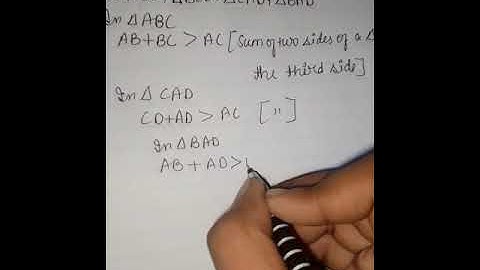 In Δ ABC
AB+BC > AC [Sum of two sides of a Δ
the third side]
In Δ CAD
CD+AD > AC ["]
In Δ BAD
AB + AD >